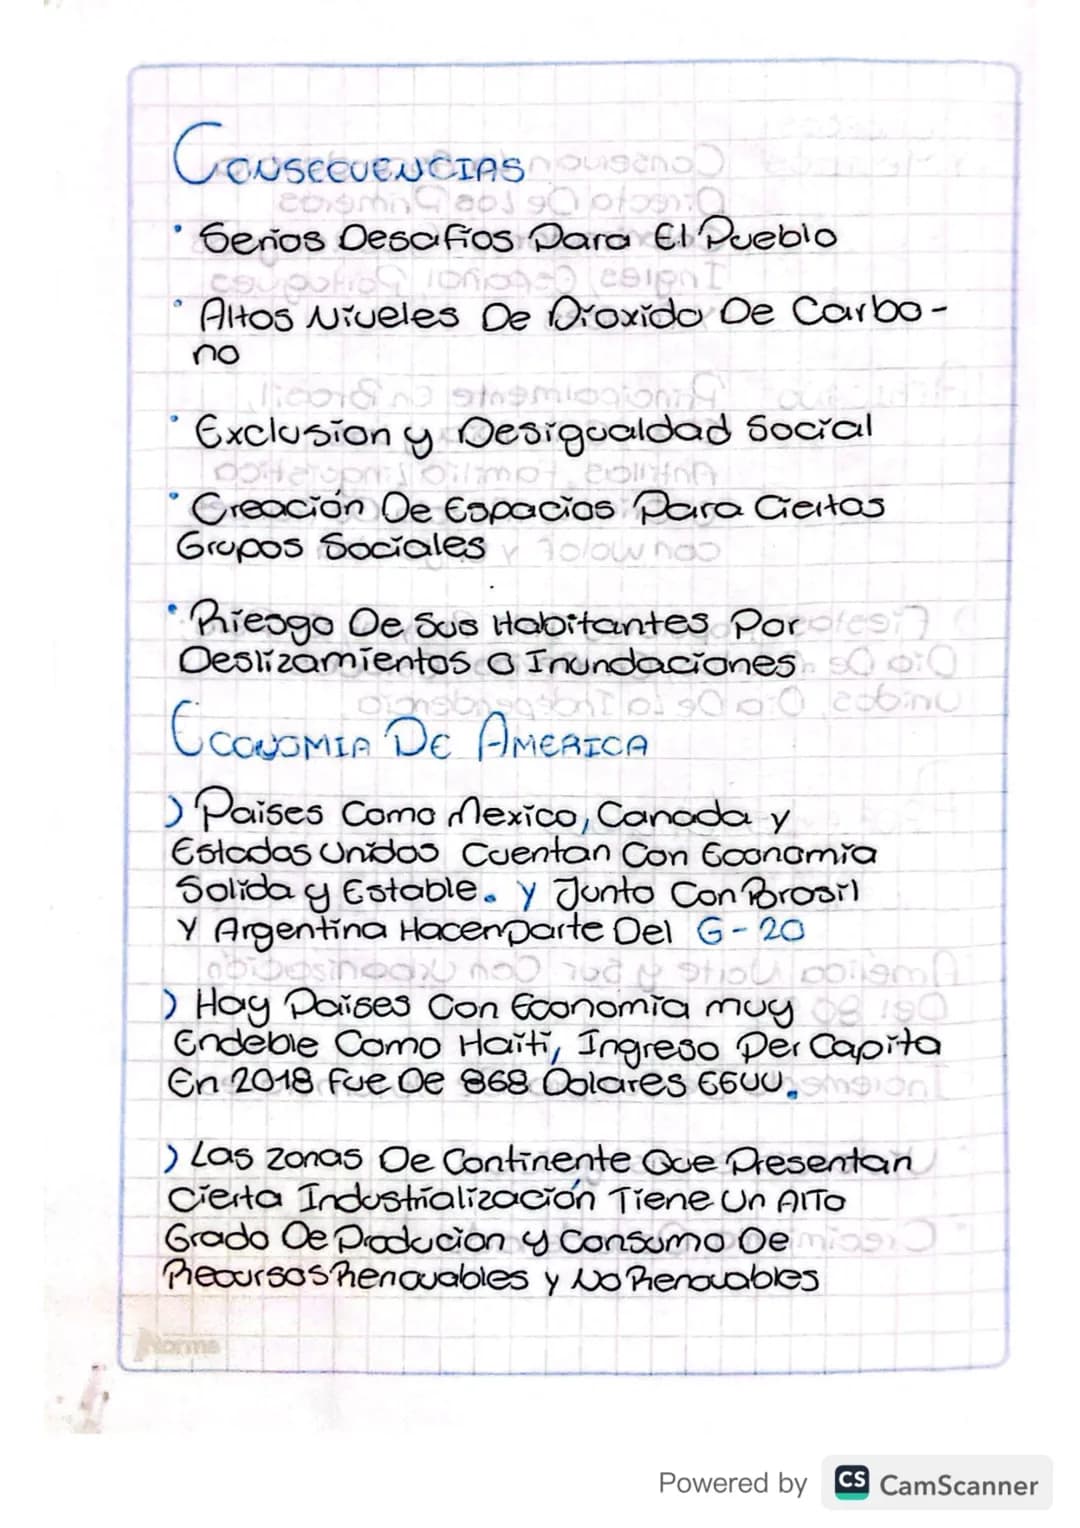 CONSECUENCIAS
• Serios Desafíos Para El Pueblo
• Altos Niveles De Dioxido De Carbo-
no
• Exclusion y Desigualdad Social
• Creación De Espacios Para Ciertas
Grupos Sociales
• Riesgo De Sus Habitantes Por
Deslizamientos o Inundaciones
ECONOMIA DE AMERICA
) Paises Como Mexico, Canada y
Estados Unidos Cuentan Con Economia
Solida y Estable. y Junto Con Brasil
Y Argentina Hacen parte Del G-20
) Hay Paises Con Economia muy
Endeble Como Haiti, Ingreso Per Capita
En 2018 fue De 868 Dolares EEUU.
) Las zonas De Continente Que Presentan
Cierta Industrialización Tiene Un Alto
Grado De Producion y Consumo De
Recursos Renovables y No Renovables
Norma
Powered by CS CamScanner